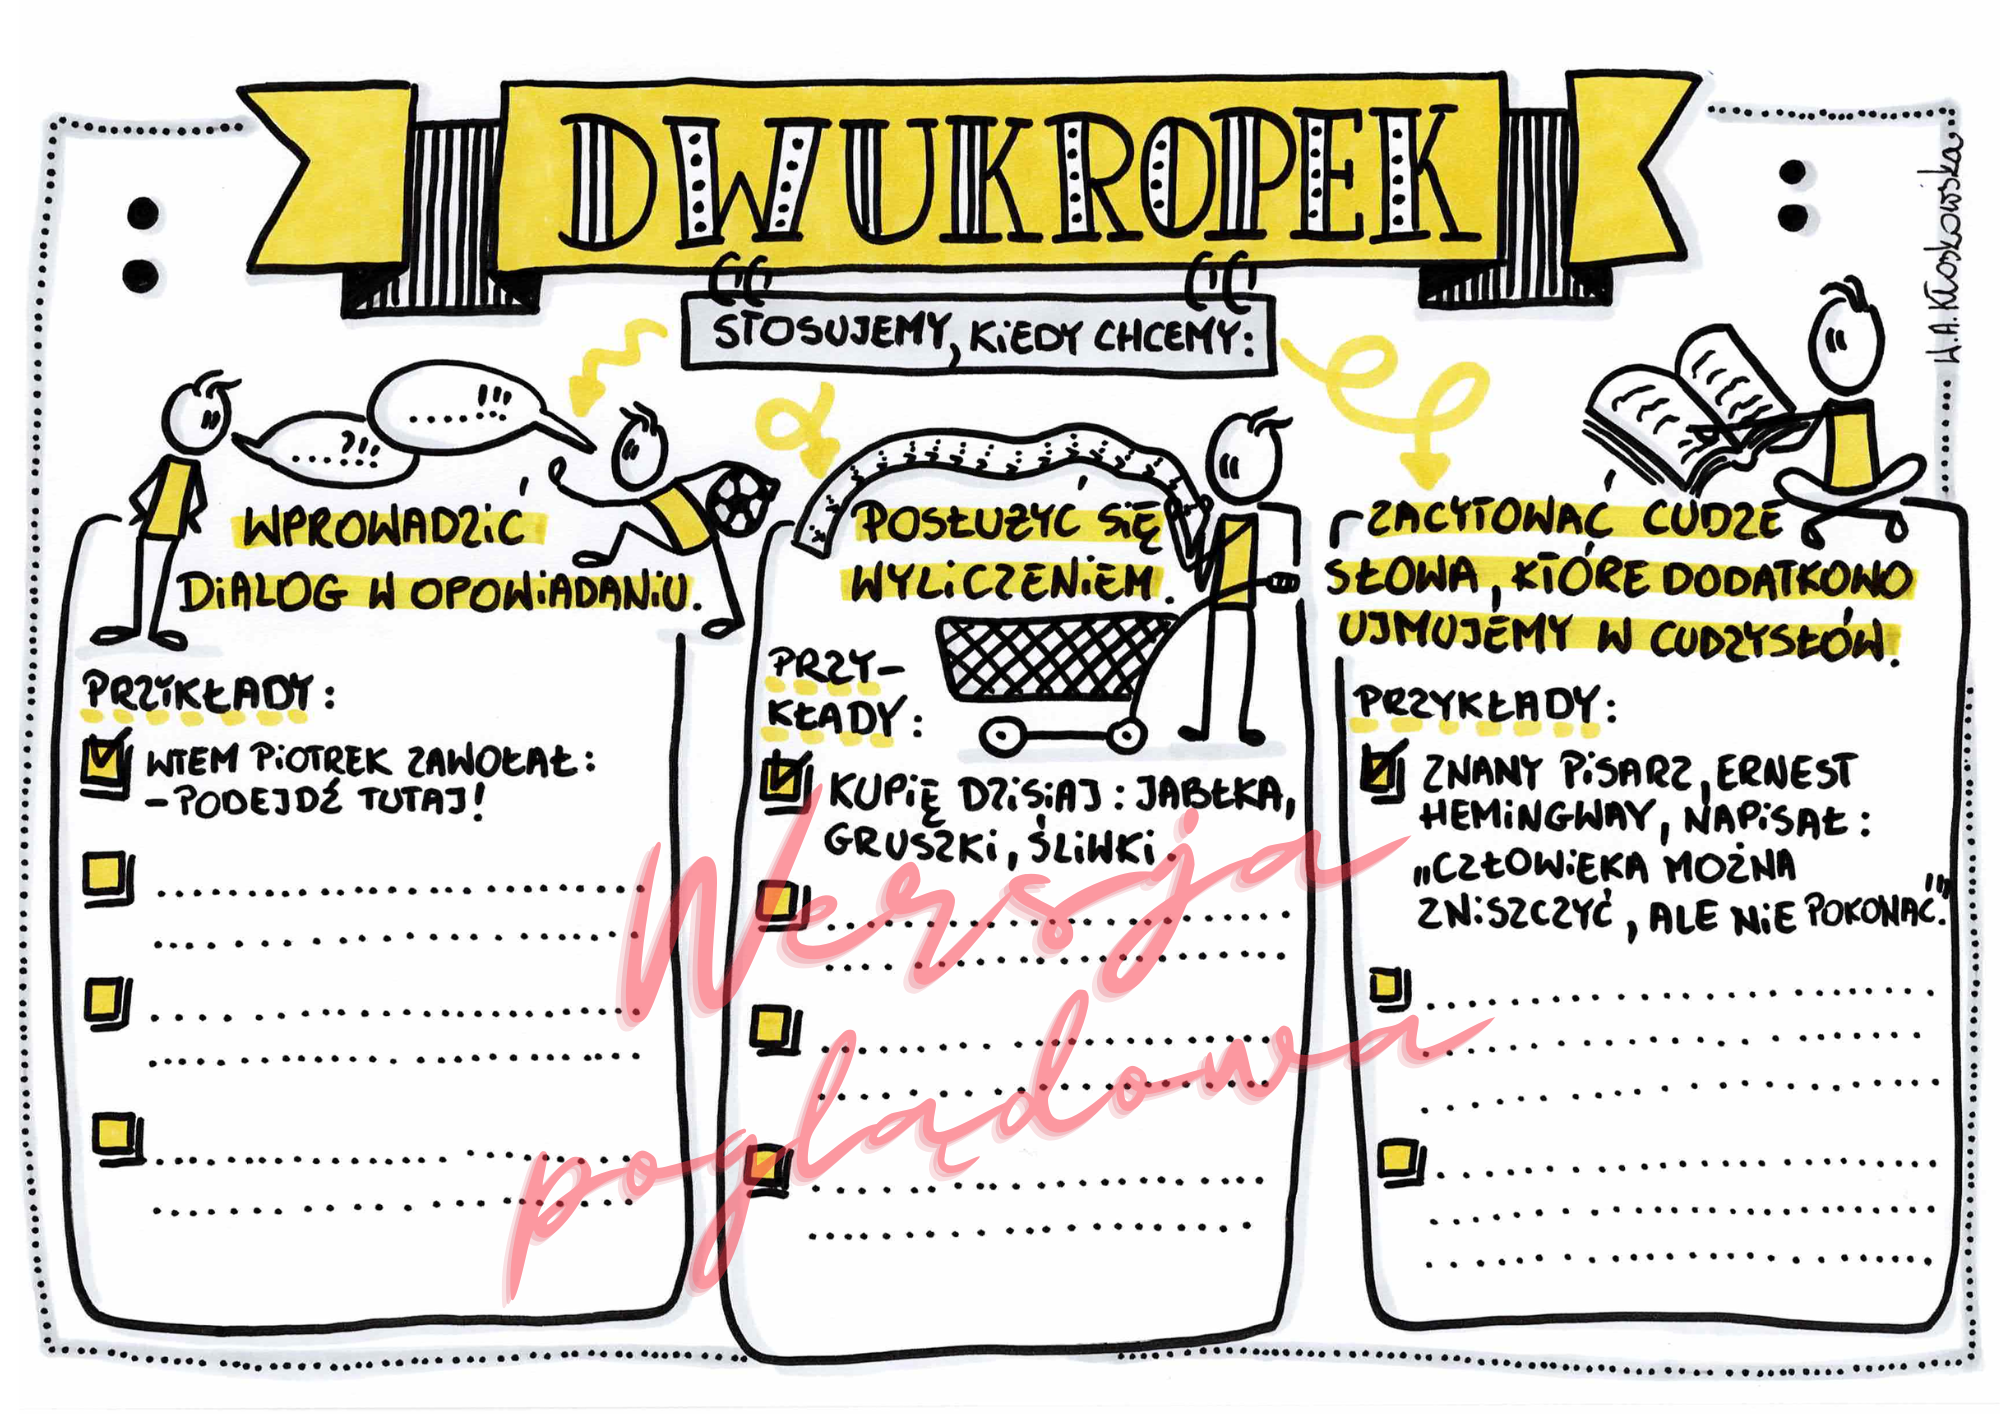 DWUKROPEK
STOSUJEMY, KIEDY CHCEMY:
W.A. Kłoskowiska
?!!
!!!
WPROWADZIĆ
DIALOG W OPOWIADANIU.
PRZYKŁADY:
WTEM PIOTREK ZAWOŁAŁ:
-PODEJDŹ TUTAJ!
POSŁUŻYĆ SIĘ
WYLICZENIEM.
PRZY-
KŁADY:
KUPIĘ DZISIAJ: JABŁKA,
GRUSZKI, ŚLIWKI.
ZACYTOWAĆ CUDZE
SŁOWA, KTÓRE DODATKOWO
UJMUJEMY W CUDZYSŁÓW.
PRZYKŁADY:
ZNANY PISARZ, ERNEST
HEMINGWAY, NAPISAŁ:
„CZŁOWIEKA MOŻNA
ZNISZCZYĆ, ALE NIE POKONAĆ."
Wersja
poglądowa